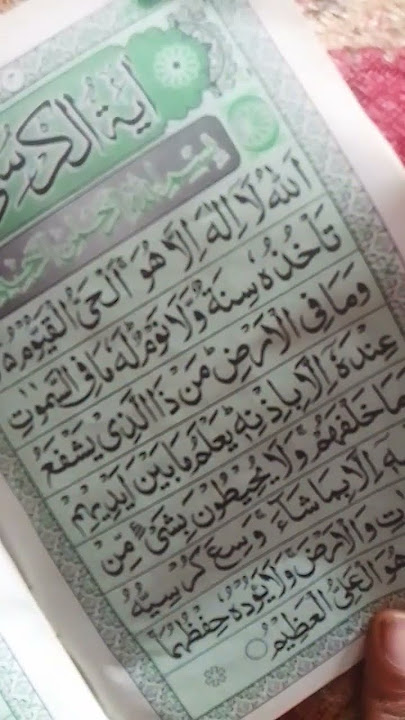 اٰيَةُ الْكُرْسِيِّ
بِسْمِ اللهِ الرَّحْمٰنِ الرَّحِيْمِ
اَللهُ لَا اِلٰهَ اِلَّا هُوَ ۚ اَلْحَيُّ الْقَيُّوْمُ ۚ
تَاْخُذُهٗ سِنَةٌ وَّلَا نَوْمٌ ؕ لَهٗ مَا فِي السَّمٰوٰتِ
وَمَا فِي الْاَرْضِ ؕ مَنْ ذَا الَّذِيْ يَشْفَعُ
عِنْدَهٗ اِلَّا بِاِذْنِهٖ ؕ يَعْلَمُ مَا بَيْنَ اَيْدِيْهِمْ
مَا خَلْفَهُمْ ۚ وَلَا يُحِيْطُوْنَ بِشَيْءٍ مِّنْ
اِلَّا بِمَا شَآءَ ۚ وَسِعَ كُرْسِيُّهُ
وَالْاَرْضَ ۚ وَلَا يَئُوْدُهٗ حِفْظُهُمَا ۚ
هُوَ الْعَلِيُّ الْعَظِيْمُ